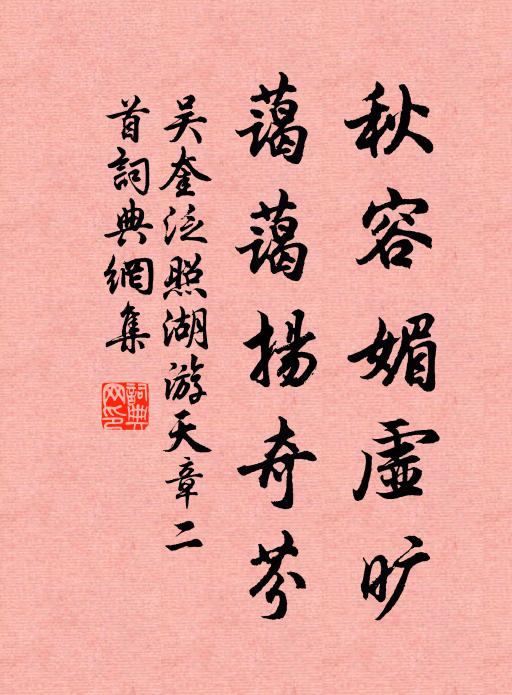 秋容媚虛曠
藹藹揚奇芬
吴奎泛照湖游天章二
首詞典網集
詞典網印